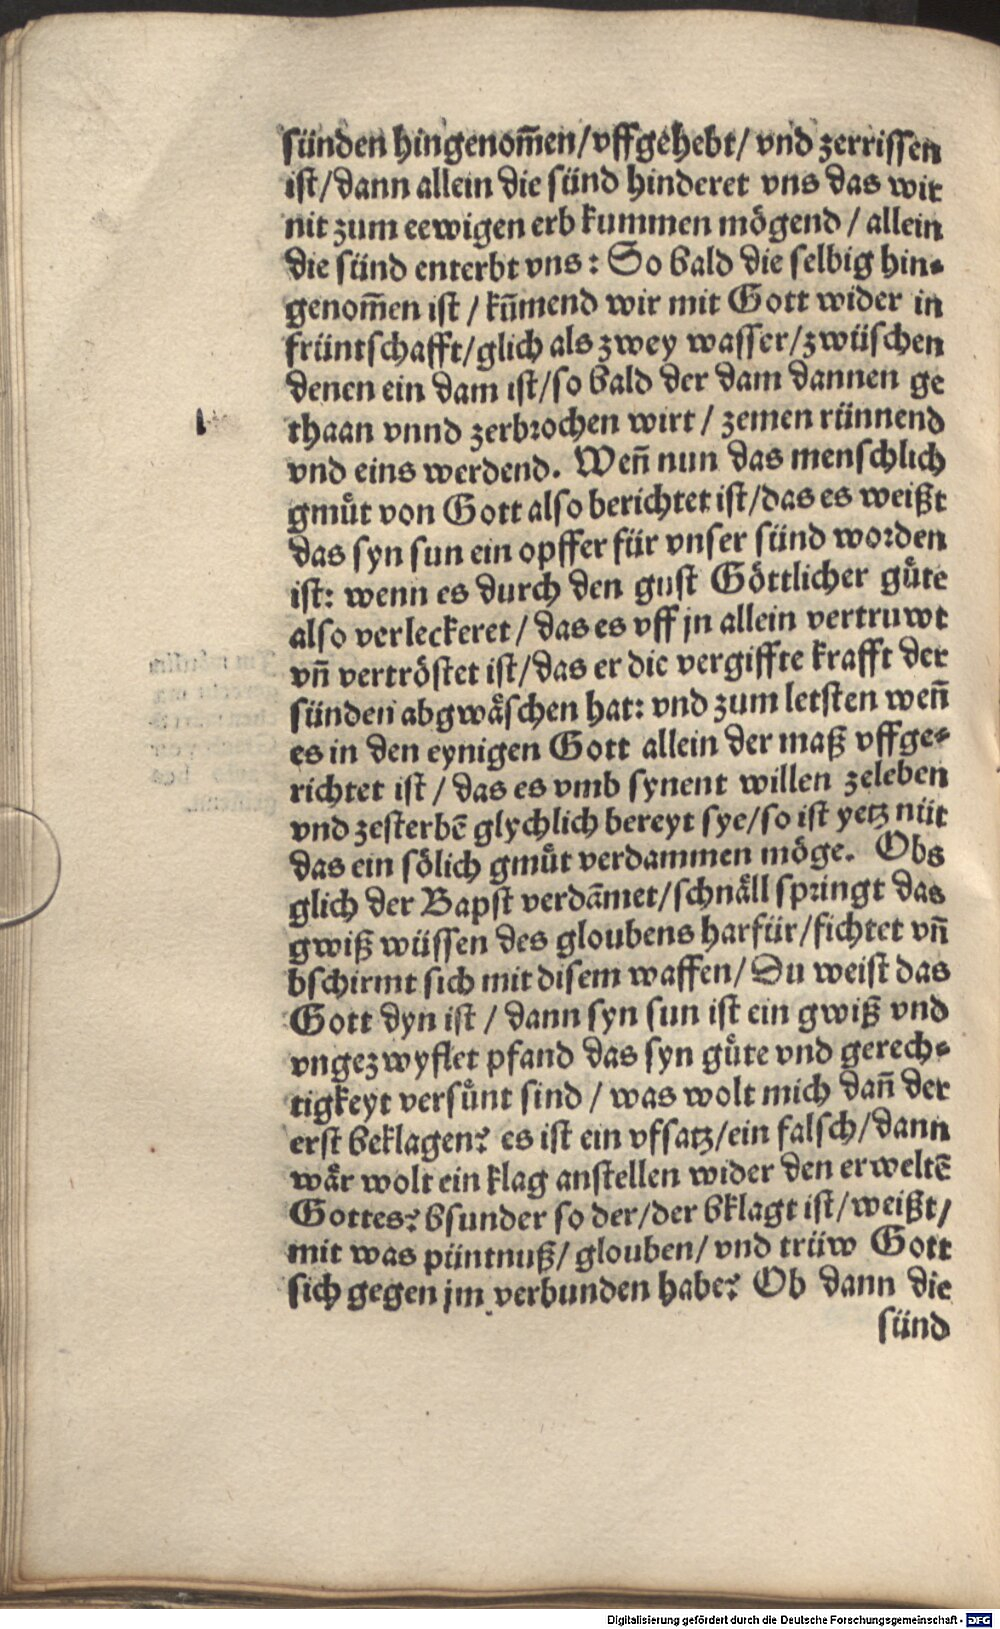 sünden hingenom̄en/vffgehebt/ vnd zerrissen
ist/dann allein die sünd hinderet vns das wir
nit zum eewigen erb kummen mögend / allein
die sünd enterbt vns: So bald die selbig hin-
genom̄en ist / kūmend wir mit Gott wider in
früntschafft/glich als zwey wasser/zwüschen
denen ein dam ist/so bald der dam dannen ge
thaan vnnd zerbrochen wirt / zemen rünnend
vnd eins werdend. Wen̄ nun das menschlich
gmuͤt von Gott also berichtet ist/das es weißt
das syn sun ein opffer für vnser sünd worden
ist: wenn es durch den gust Göttlicher guͤte
also verleckeret / das es vff jn allein vertruwt
vn̄ vertröstet ist/das er die vergiffte krafft der
sünden abgwäschen hat: vnd zum letsten wen̄
es in den eynigen Gott allein der maß vffge-
richtet ist / das es vmb synent willen zeleben
vnd zesterbē glychlich bereyt sye/so ist yetz nüt
das ein sölich gmuͤt verdammen möge. Obs
glich der Bapst verdāmet/schnäll springt das
gwiß wüssen des gloubens harfür/fichtet vn̄
bschirmt sich mit disem waffen/ Du weist das
Gott dyn ist / dann syn sun ist ein gwiß vnd
vngezwyflet pfand das syn guͤte vnd gerech-
tigkeyt versuͤnt sind / was wolt mich dan̄ der
erst beklagen? es ist ein vfsatz/ein falsch/dann
wär wolt ein klag anstellen wider den erweltē
Gottes? bsunder so der/der bklagt ist/weißt/
mit was püntnuß/ glouben/ vnd trüw Gott
sich gegen jm verbunden habe? Ob dann die
sünd
Digitalisierung gefördert durch die Deutsche Forschungsgemeinschaft - DFG